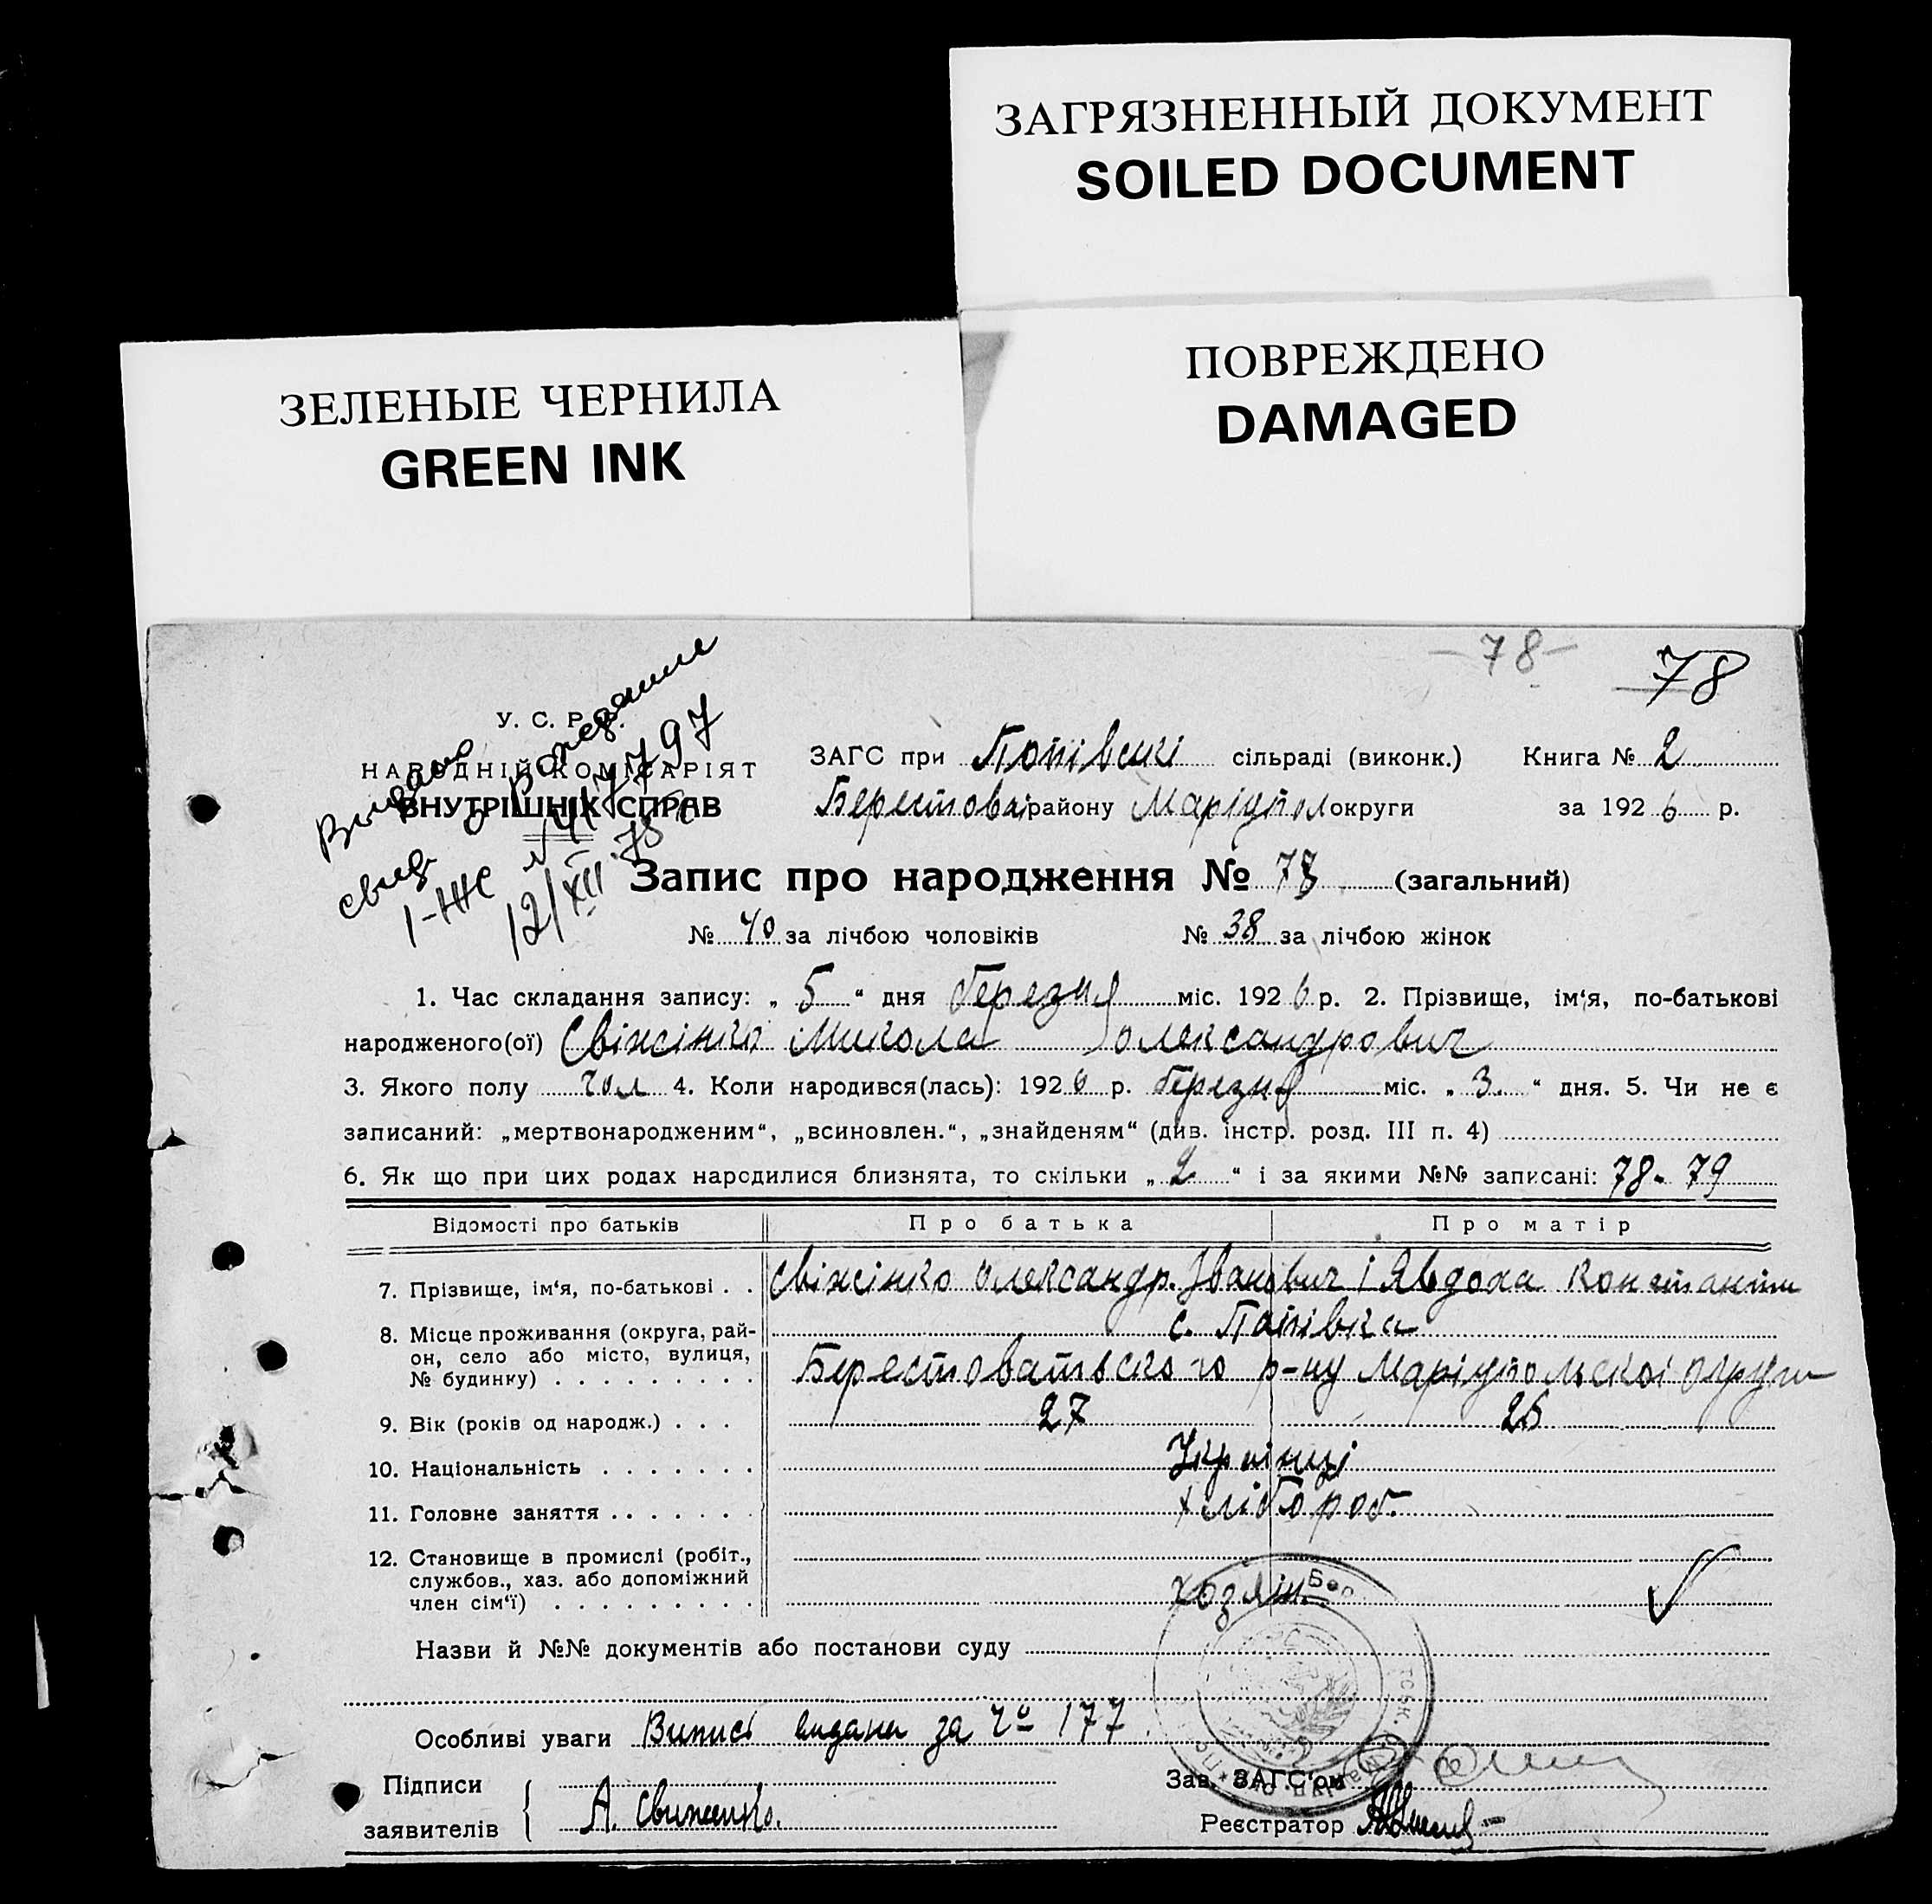 ЗАГРЯЗНЕННЫЙ ДОКУМЕНТ
SOILED DOCUMENT
ЗЕЛЕНЫЕ ЧЕРНИЛА
GREEN INK
ПОВРЕЖДЕНО
DAMAGED
-78-
78
У. С. Р. Р.
НАРОДНІЙ КОМІСАРІЯТ
ВНУТРІШНІХ СПРАВ
Выдано
свид. о рождении
I-ЖС №
12/XII-75
ЗАГС при Попівські сільраді (виконк.) Книга № 2
Берестова району Маріупол округи за 1926 р.
Запис про народження № 78 (загальний)
№ 40 за лічбою чоловіків № 38 за лічбою жінок
1. Час складання запису: „ 5 “ дня березня міс. 1926 р. 2. Прізвище, ім‘я, по-батькові
народженого(ої) Свіжінко Микола Олександрович
3. Якого полу чол 4. Коли народився(лась): 1926 р. березня міс. „ 3. “ дня. 5. Чи не є
записаний: „мертвонародженим“, „всиновлен.“, „знайденям“ (див. інстр. розд. III п. 4)
6. Як що при цих родах народилися близнята, то скільки „ 2 “ і за якими №№ записані: 78 - 79
Відомості про батьків Про батька Про матір
7. Прізвище, ім‘я, по-батькові . . Свіжінко Олександр. Іванович і Явдоха Константин
8. Місце проживання (округа, рай-
он, село або місто, вулиця,
№ будинку) . . . . . . . . .
с. Попівка
Берестоватьского р-ну Маріупольскої округи
9. Вік (років од народж.) . . . 27 26
10. Національність . . . . . . . Українці
11. Головне заняття . . . . . . . хлібороб.
12. Становище в промислі (робіт.,
службов., хаз. або допоміжний
член сім‘ї) . . . . . . . . . хозяін.
Назви й №№ документів або постанови суду
Особливі уваги Випись видана за № 177
Підписи
заявителів А. Свиженко.
Зав. ЗАГС‘ом
Реєстратор